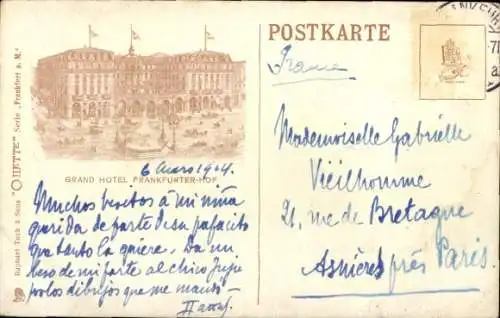 Raphael Tuck & Sons "OILETTE" Serie „Frankfurt a. M."
GRAND HOTEL FRANKFURTER-HOF
6 Enero 1904.
Muchos besitos á mi niña
querida de parte de su papacito
que tanto la quiere. Da un
beso de mi parte al chico Pepe
por los dibujos que me mandó —
POSTKARTE
France
Mademoiselle Gabrielle
Vieilhomme
21, rue de Bretagne
Asnières près Paris